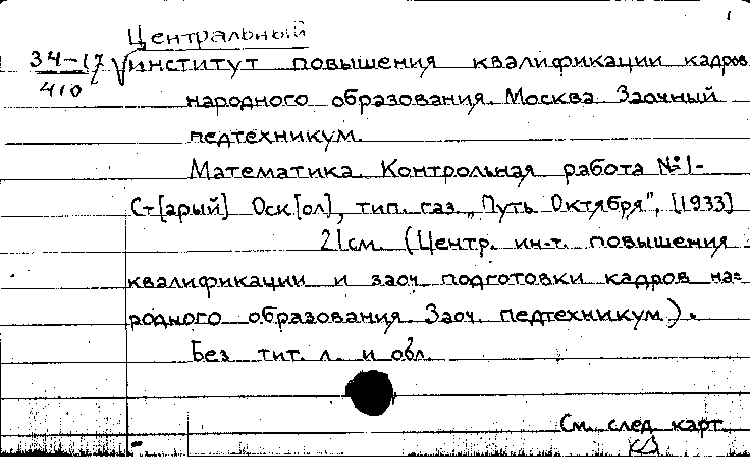 Центральный
34-17
410
институт повышения квалификации кадров
народного образования. Москва. Заочный
педтехникум.
Математика. Контрольная работа №1-
Ст[арый] Оск[ол], тип. газ. „Путь Октября", [1933]
21см. (Центр. ин-т. повышения
квалификации и заоч. подготовки кадров на=
родного образования. Заоч. педтехникум).
Без тит. л. и обл.
См. след. карт.